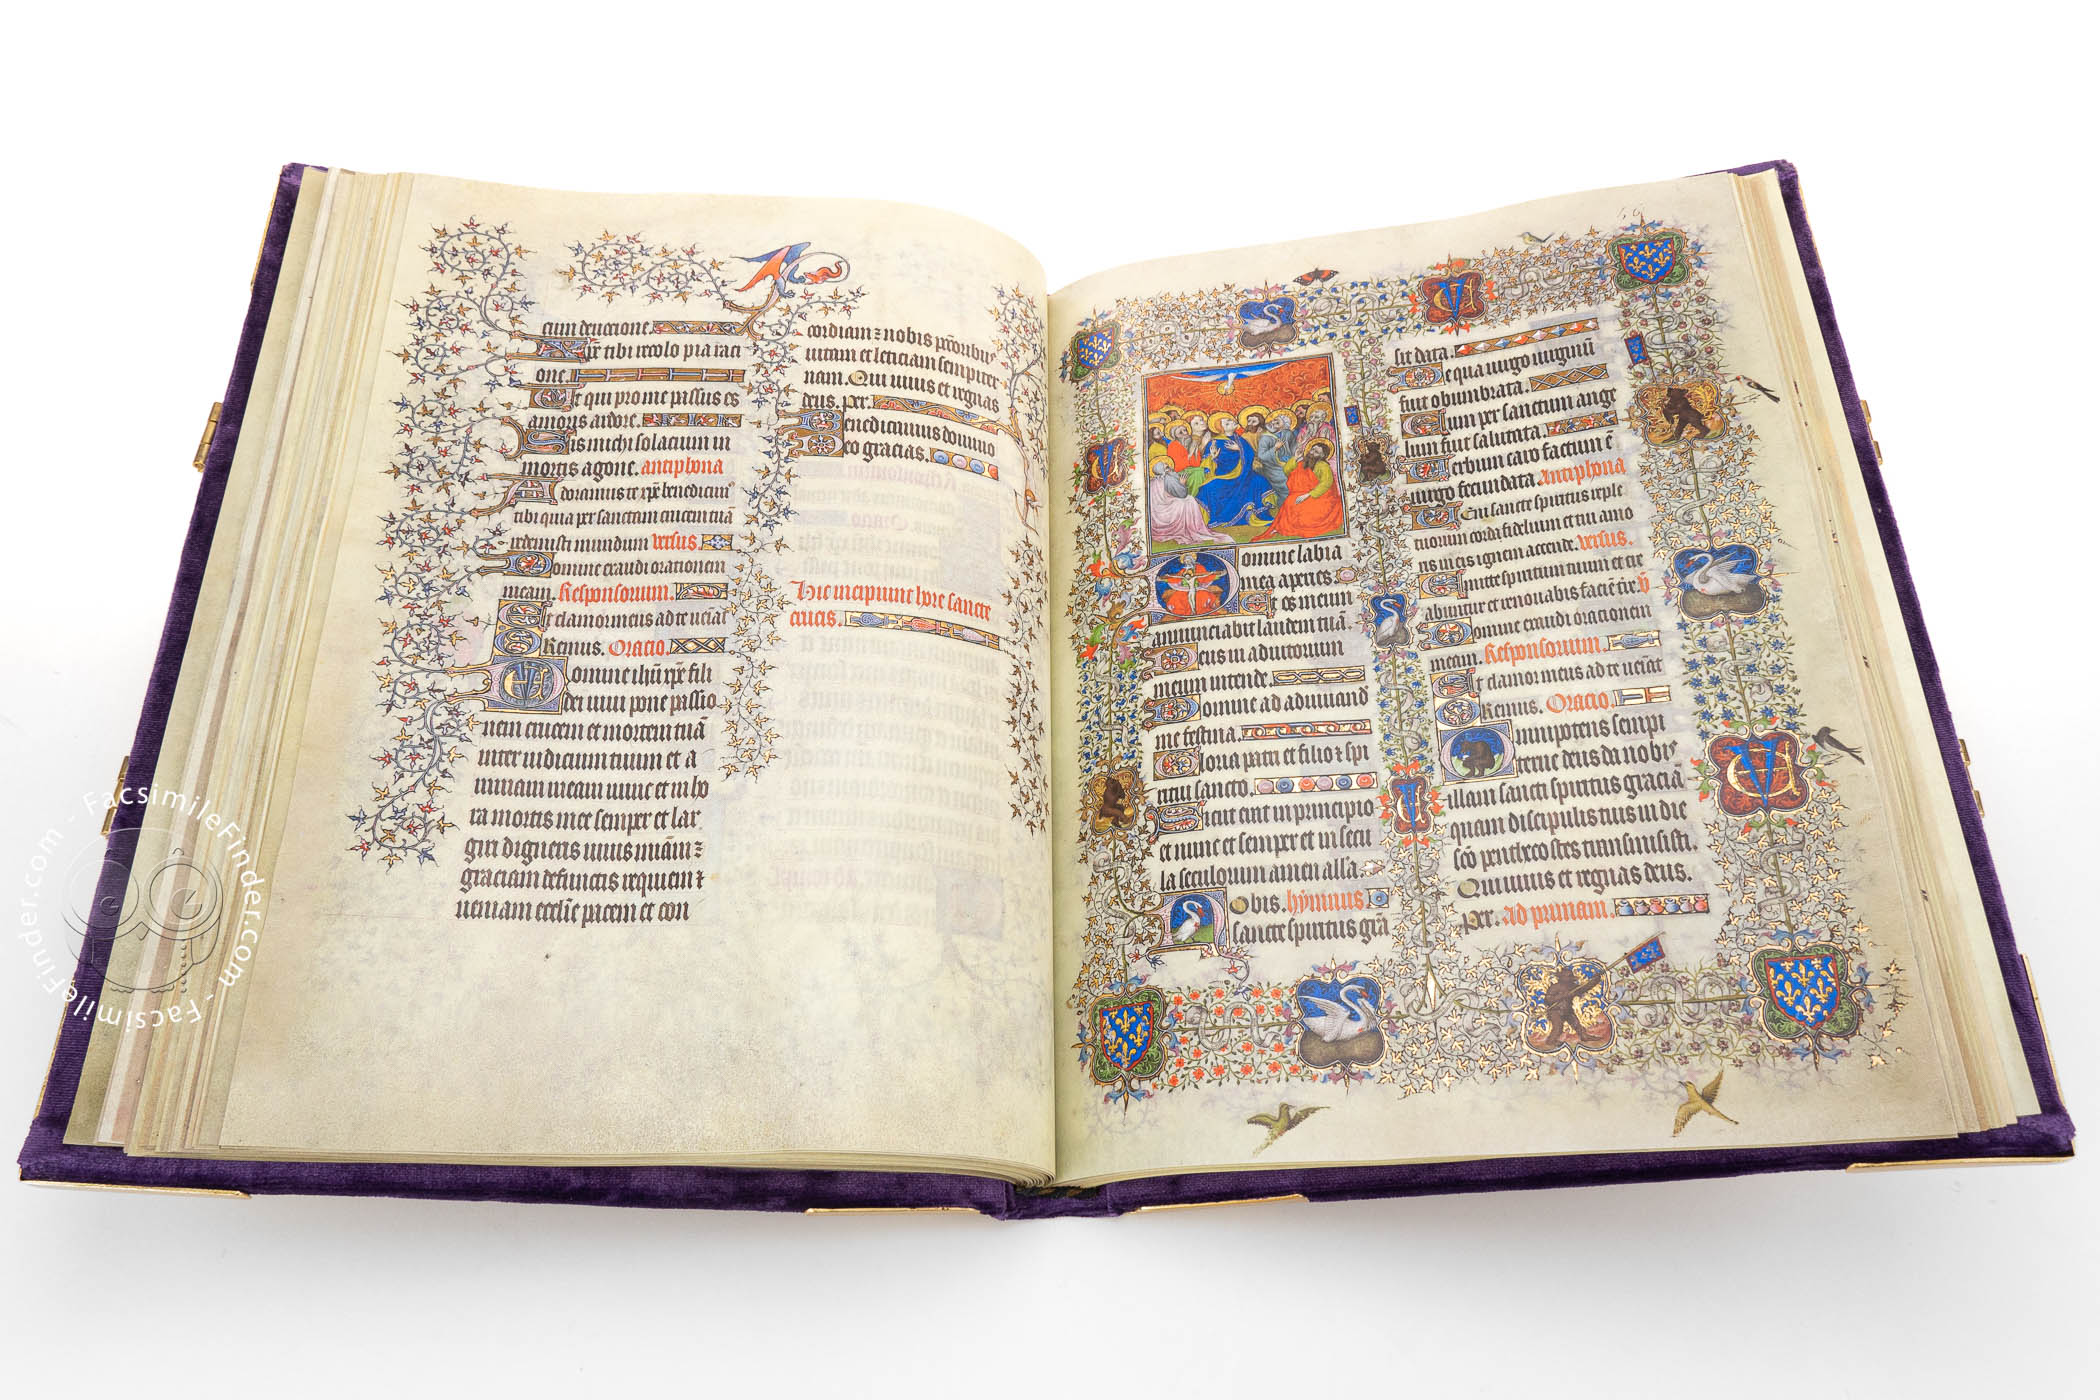 cum deuocione.
Xpe tibi recolo pia raci
one.
Et qui pro me passus es
amoris ardore.
Sis michi solacium in
mortis agone. antiphona
Adoramus te xpe benedicim
tibi quia per sanctam crucem tuā
redemisti mundum versus.
Domine exaudi orationem
meam. Responsorium.
Et clamor meus ad te ueniat
Oremus. Oracio.
Domine ihū xpe fili
dei uiui pone passio
nem crucem et mortem tuā
inter iudicium tuum et a
nimam meam nunc et in ho
ra mortis mee semper et lar
giri digneris uiuis miam ⁊
graciam defunctis requiem ⁊
ueniam ecclie pacem et con
cordiam ⁊ nobis pctoribus
uitam et leticiam sempiter
nam. Qui uiuis et regnas
deus. per.
Benedicamus domino
Deo gracias.
Hic incipiunt hore sancte
crucis.
56
Domine labia
mea aperies.
Et os meum
annunciabit laudem tuā.
Deus in adiutorium
meum intende.
Domine ad adiuuand
me festina.
Gloria patri et filio ⁊ spi
ritui sancto.
Sicut erat in principio
et nunc et semper et in secu
la seculorum amen alla.
Nobis. hymnus
sancte spiritus grā
sit data.
De qua uirgo uirginū
fuit obumbrata.
Cum per sanctum ange
lum fuit salutata.
Verbium caro factum ē
uirgo fecundata. Antiphona
Ueni sancte spiritus reple
tuorum corda fidelium et tui amo
ris in eis ignem accende. versus.
Emitte spiritum tuum et cre
abuntur et renouabis faciē tre. ℣
Domine exaudi orationem
meam. Responsorium.
Et clamor meus ad te ueniat
Oremus. Oracio.
Omnipotens sempi
terne deus da nobis
illam sancti spiritus graciā
quam discipulis tuis in die
scō penthecostes transmisisti.
Qui uiuis et regnas deus.
Per. ad primam.
FacsimileFinder.com - FacsimileFinder.com - FacsimileFinder.com